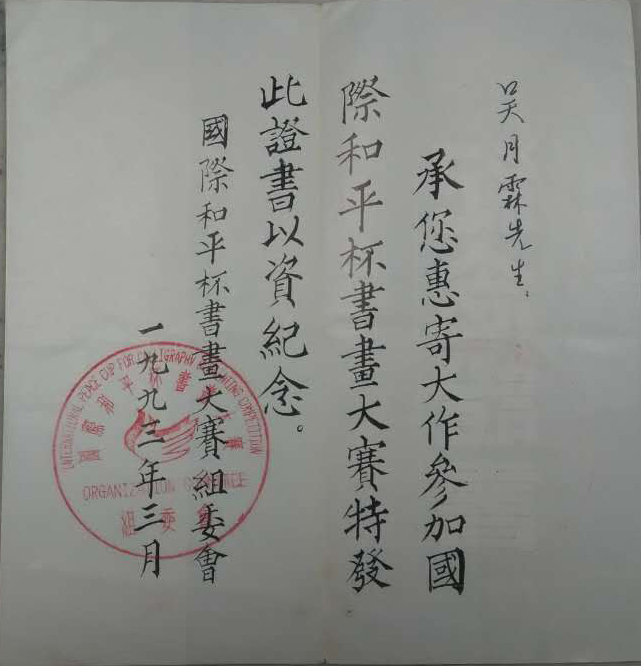 吴月霖先生:
承您惠寄大作參加國
際和平杯書畫大賽特發
此證書以資紀念。
國際和平杯書畫大賽組委會
一九九三年三月
INTERNATIONAL PEACE CUP FOR CALLIGRAPHY PAINTING COMPETITION
國際和平杯書畫大賽
ORGANIZATION COMMITTEE
組委會